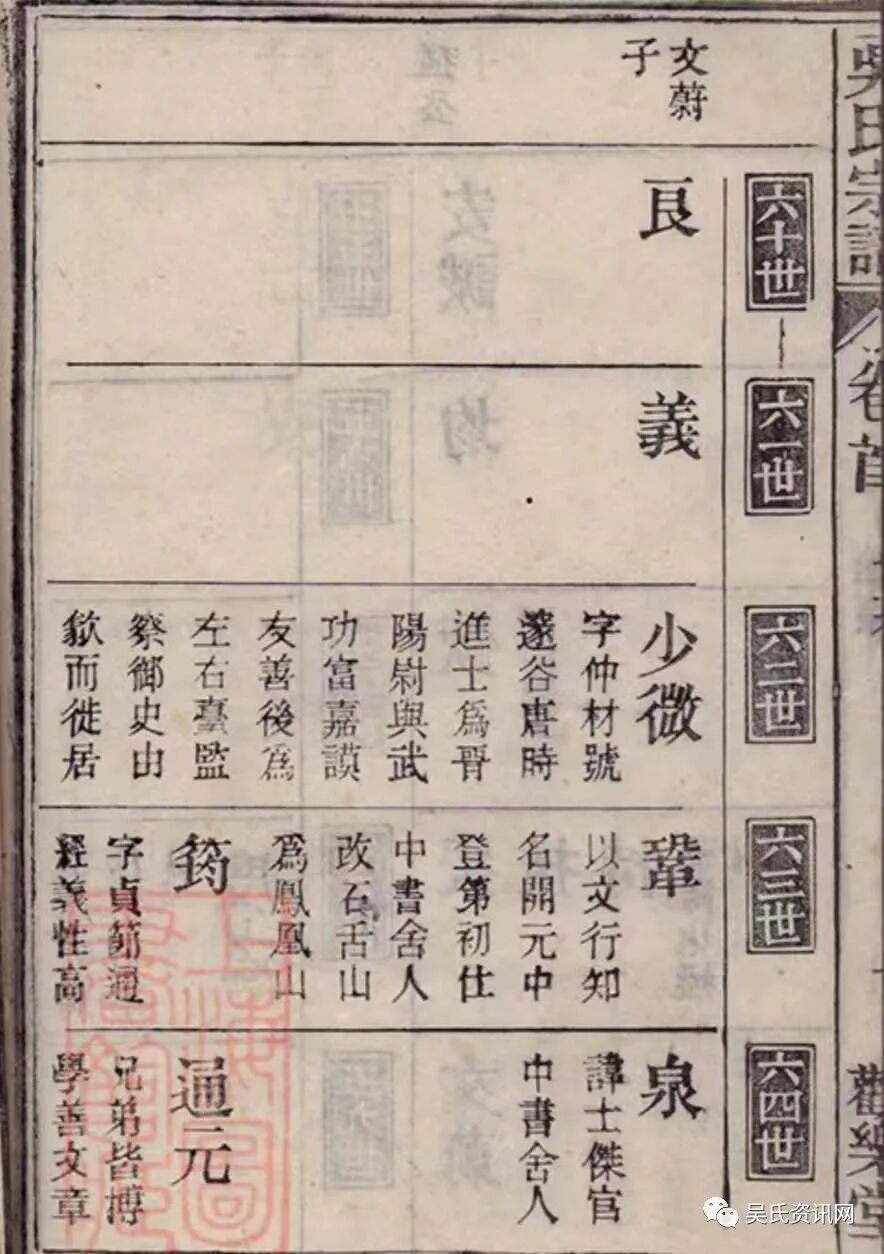 吳氏宗譜
卷首
觀樂堂
文蔚
子
六十世
良
六一世
義
六二世
少微
字仲材號
邃谷唐時
進士爲晋
陽尉與武
功富嘉謨
友善後爲
左右臺監
察御史由
歙而徙居
六三世
鞏
以文行知
名開元中
登第初仕
中書舍人
改石舌山
爲鳳凰山
筠
字貞節通
經義性高
六四世
泉
諱士傑官
中書舍人
通元
兄弟皆博
學善文章
上海圖
書館藏
吴氏资讯网